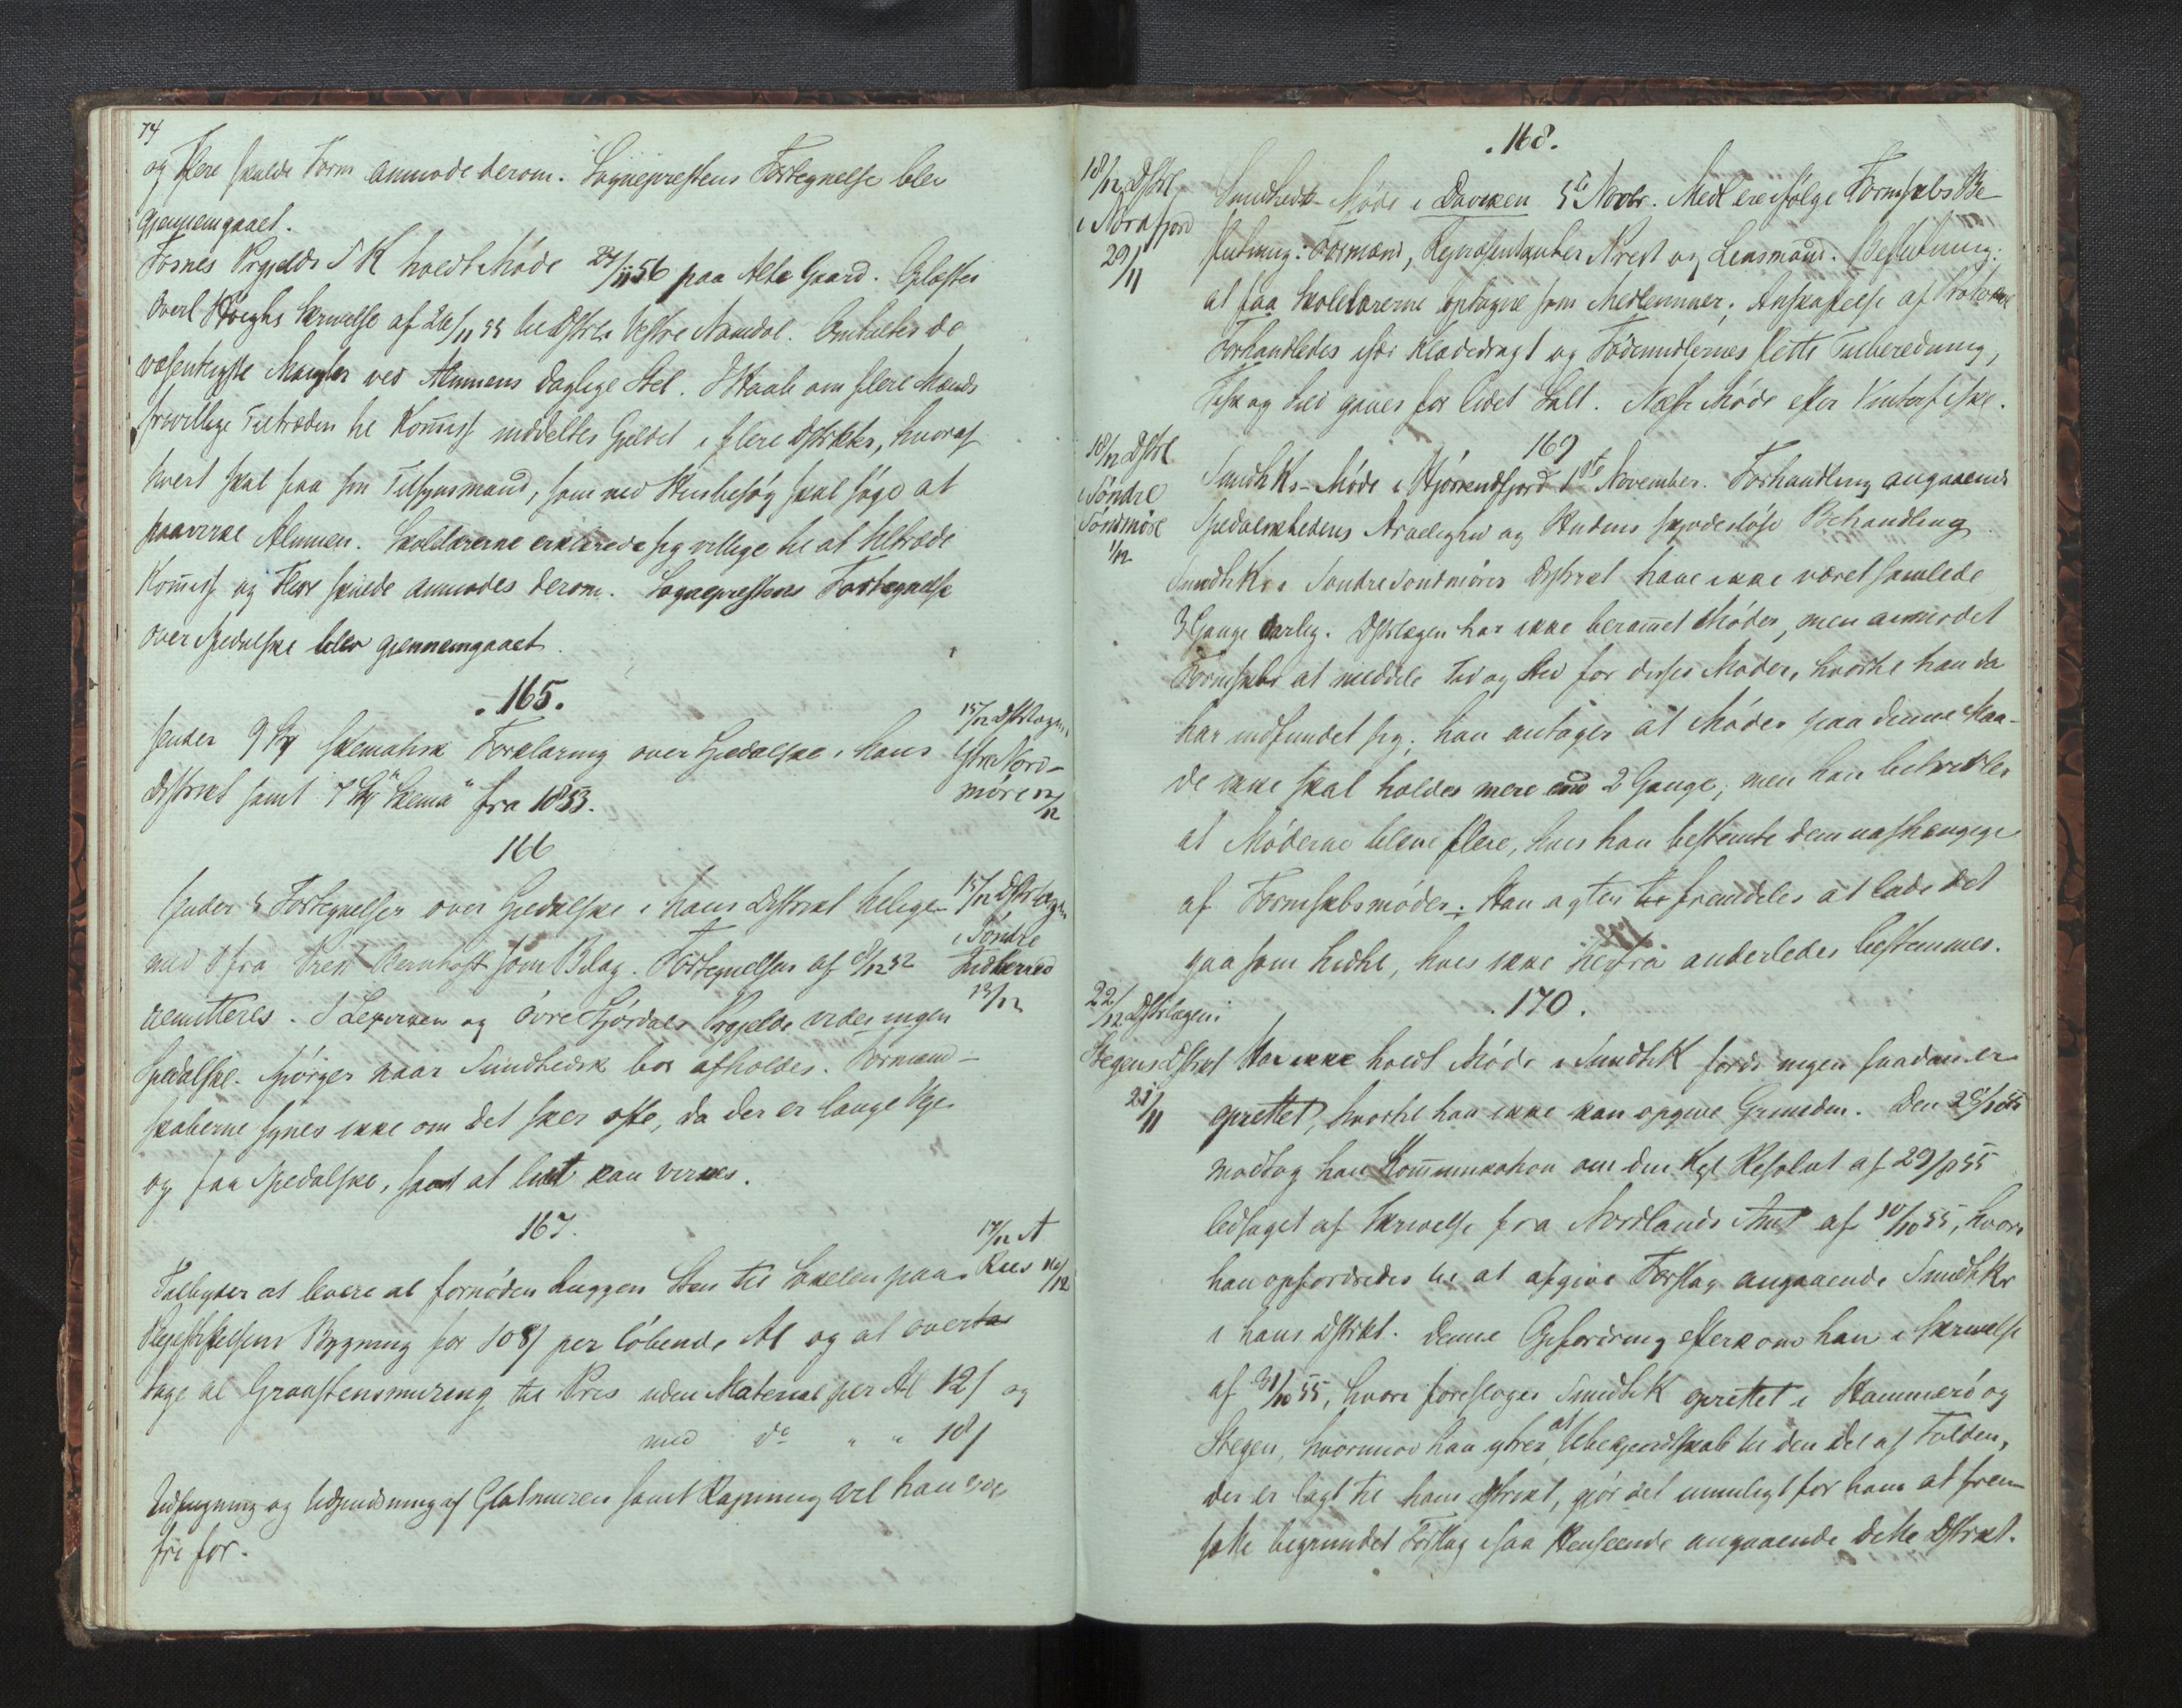 74
og Flere skulde Form anmode derom. Sognepræstens Fortegnelse blev
gjennemgaaet.
Fosnes Prgjelds S K holdt Møde 24/11 56 paa Alte Gaard. Oplæstes
Overl Høeghs Skrivelse af 26/11 55 til Dstrl. Vestre Namdal. Omtaltes de
væsentligste Mangler ved Almuens daglige Stel. I Haab om flere Mænds
frivillige Tiltræden til Kom̄iss inddeltes Gjeldet i flere Distrikter, hvoraf
hvert skal faa sin Tilsynsmand, som ved Husbesøg skal søge at
paavirke Almuen. Skolelærerne erklærede sig villige til at tiltræde
Kom̄iss og Flere skulde anmodes derom. Sognepræstens Fortegnelse
over Spedalske blev gjennemgaaet.
.165.
15/12 Dstrlægen i
Ytre Nord-
møre 12/12
Sender 9 St skematisk Forklaring over Spedalske i hans
Dstrikt samt 7 St "Skema" fra 1853.
166
15/12 Dstrlægen
i Søndre
Indherred
13/12
Sender 5 Fortegnelser over Spedalske i hans Distrikt tillige
med 1 fra Præst Bernhoft som Bilag. Fortegnelsen af 8/12 52
remitteres. I Lexviken og Øvre Stjørdalens Prgjelde vides ingen
Spedalske. Spørger naar Sundhedsk bør afholdes. Formand-
skaberne synes ikke om det sker ofte, da der er lange Veje
og faa Spedalske, samt at lidt kan virkes.
167.
17/12 A
Rees 16/12
Tilbyder at levere al fornøden huggen Sten til Sokkelen paa
Plejestiftelsens Bygning for 108 ſ per løbende Al og at over
tage al Graastensmuring til Pris uden Material per Al 12 ſ og
med do " " 18 ſ
Udfugning og Udpudsning af Glatmuren samt Rapning vil han være
fri for.
.168.
18/12 Dstrl
i Nordfjord
29/11
Sundheds-Møde i Daviken 5te Novbr. Medl ere ifølge Formskabs Be
slutning: Formænd, Repræsentanter Præst og Lensmand. Beslutning:
at faa Skolelærerne optagne som Medlemmer; Anskaffelse af Protokol
Forhandledes især Klædedragt og Fødemidlernes slette Tilberedning,
Fisk og Sild gaves for lidet Salt. Næste Møde efter Vinterfiske.
169
18/12 Dstrl
i Søndre
Søndmøre
1/12
Sundhks-Møde i Hjørendfjord 1ste November. Forhandling angaaende
Spedalskhedens Arvelighed og Hudens skjødesløse Behandling
Sundhk i Søndre Søndmøres Dstrikt have ikke været samlede
3 Gange aarlig. Dstrlægen har ikke beram̄et Møder, men anmodet
Formskbt at meddele Tid og Sted for disses Møder, hvortil han da
har indfundet sig; han antager at Møder paa denne Maa-
de ikke skal holdes mere end 2 Gange; men han betvivler
at Møderne bleve flere, hvis han bestemte dem uafhængige
af Formskabsmøder; Han agter fremdeles at lade det
gaa som hidtil, hvis ikke herfra anderledes bestemmes.
.170.
22/12 Dstrlægen i
Stegens Dstrikt
21/11
Har ikke holdt Møde i SundhK fordi ingen saadan er
oprettet, hvortil han ikke kan opgive Grunden. Den
modtog han Kom̄unikation om den Kgl Resolut af 29/8 55
ledsaget af Skrivelse fra Nordlands Amt af 10/10 55, hvori
han opfordredes til at afgive Forslag angaaende SundhKr
i hans Dstrikt. Denne Opfordring efterkom han i Skrivelse
af 31/10 55, hvori foresloges SundhK oprettet i Hammerø og
Stegen, hvorimod han ytrer, at Ubekjendtskab til den Del af Folden,
der er lagt til hans Dstrikt, gjør det umuligt for ham at frem
sætte begrundet Forslag i saa Henseende angaaende dette Dstrikt.